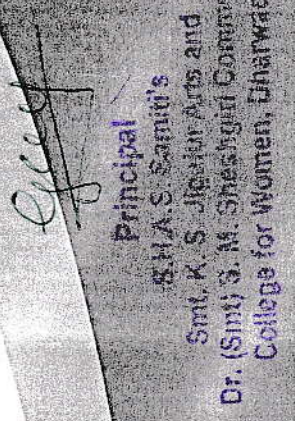 Principal
S.H.A.S. Samiti's
Smt. K. S. Jigalur Arts and
Dr. (Smt) S. M. Sheshgiri Comm
College for Women, Dharwad